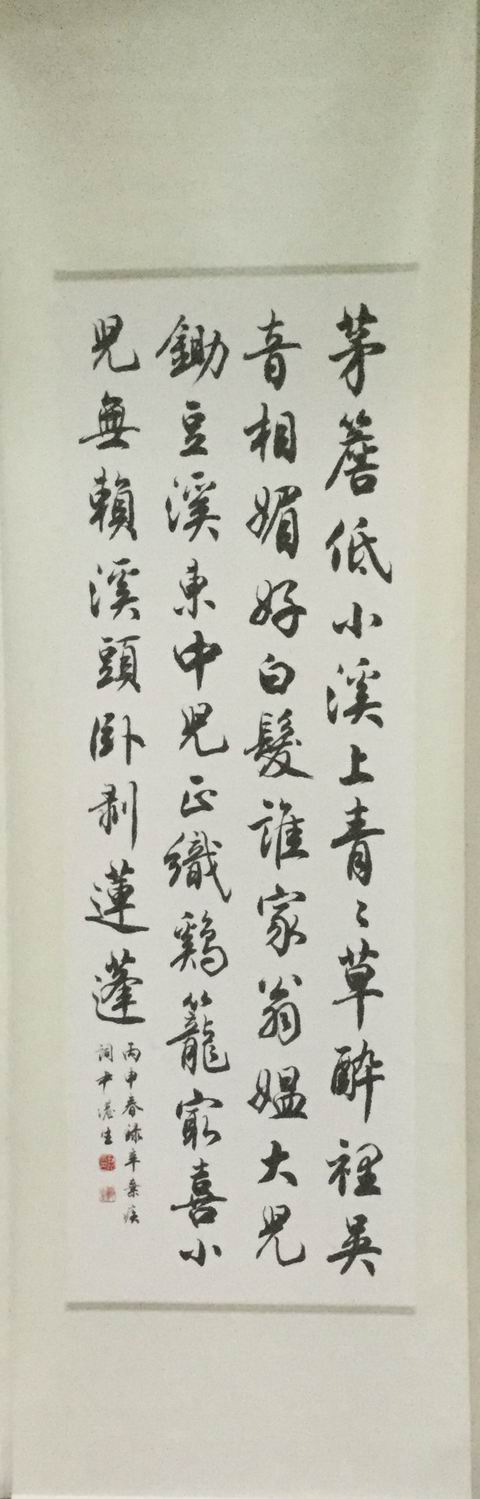 茅簷低小溪上青〻草醉裡吳
音相媚好白髮誰家翁媼大兒
鋤豆溪東中兒正織鷄籠最喜小
兒無賴溪頭卧剥蓮蓬
丙申春録辛棄疾
詞于港生